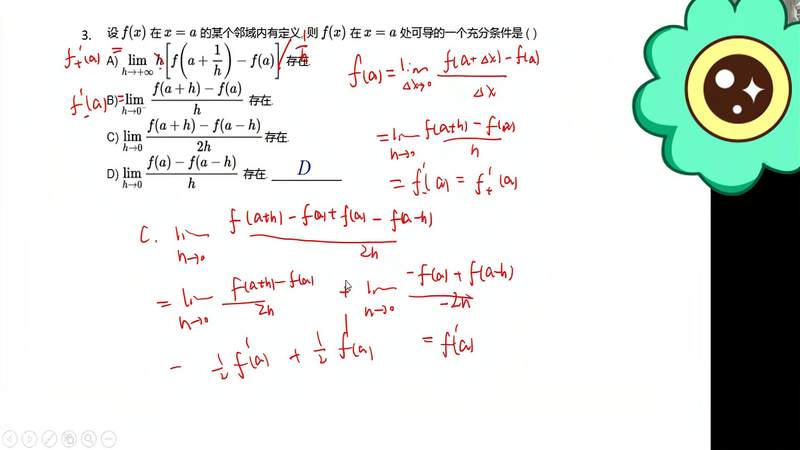 3. 设 f(x) 在 x = a 的某个邻域内有定义, 则 f(x) 在 x = a 处可导的一个充分条件是 ( )
f₊'(a) = A) lim_{h→+∞} h[f(a + 1/h) − f(a)] / 1/h 存在.
f₋'(a) = B) lim_{h→0⁻} (f(a + h) − f(a))/h 存在.
C) lim_{h→0} (f(a + h) − f(a − h))/2h 存在.
D) lim_{h→0} (f(a) − f(a − h))/h 存在. D
f'(a) = lim_{Δx→0} (f(a+Δx) − f(a))/Δx
= lim_{h→0} (f(a+h) − f(a))/h
= f₋'(a) = f₊'(a)
C. lim_{h→0} (f(a+h) − f(a) + f(a) − f(a−h))/2h
= lim_{h→0} (f(a+h) − f(a))/2h + lim_{h→0} (−f(a) + f(a−h))/−2h
− 1/2 f'(a) + 1/2 f'(a) = f'(a)